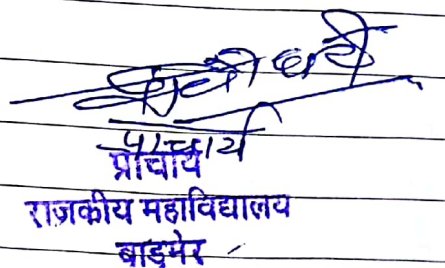 प्राचार्य
प्राचार्य
राजकीय महाविद्यालय
बाड़मेर